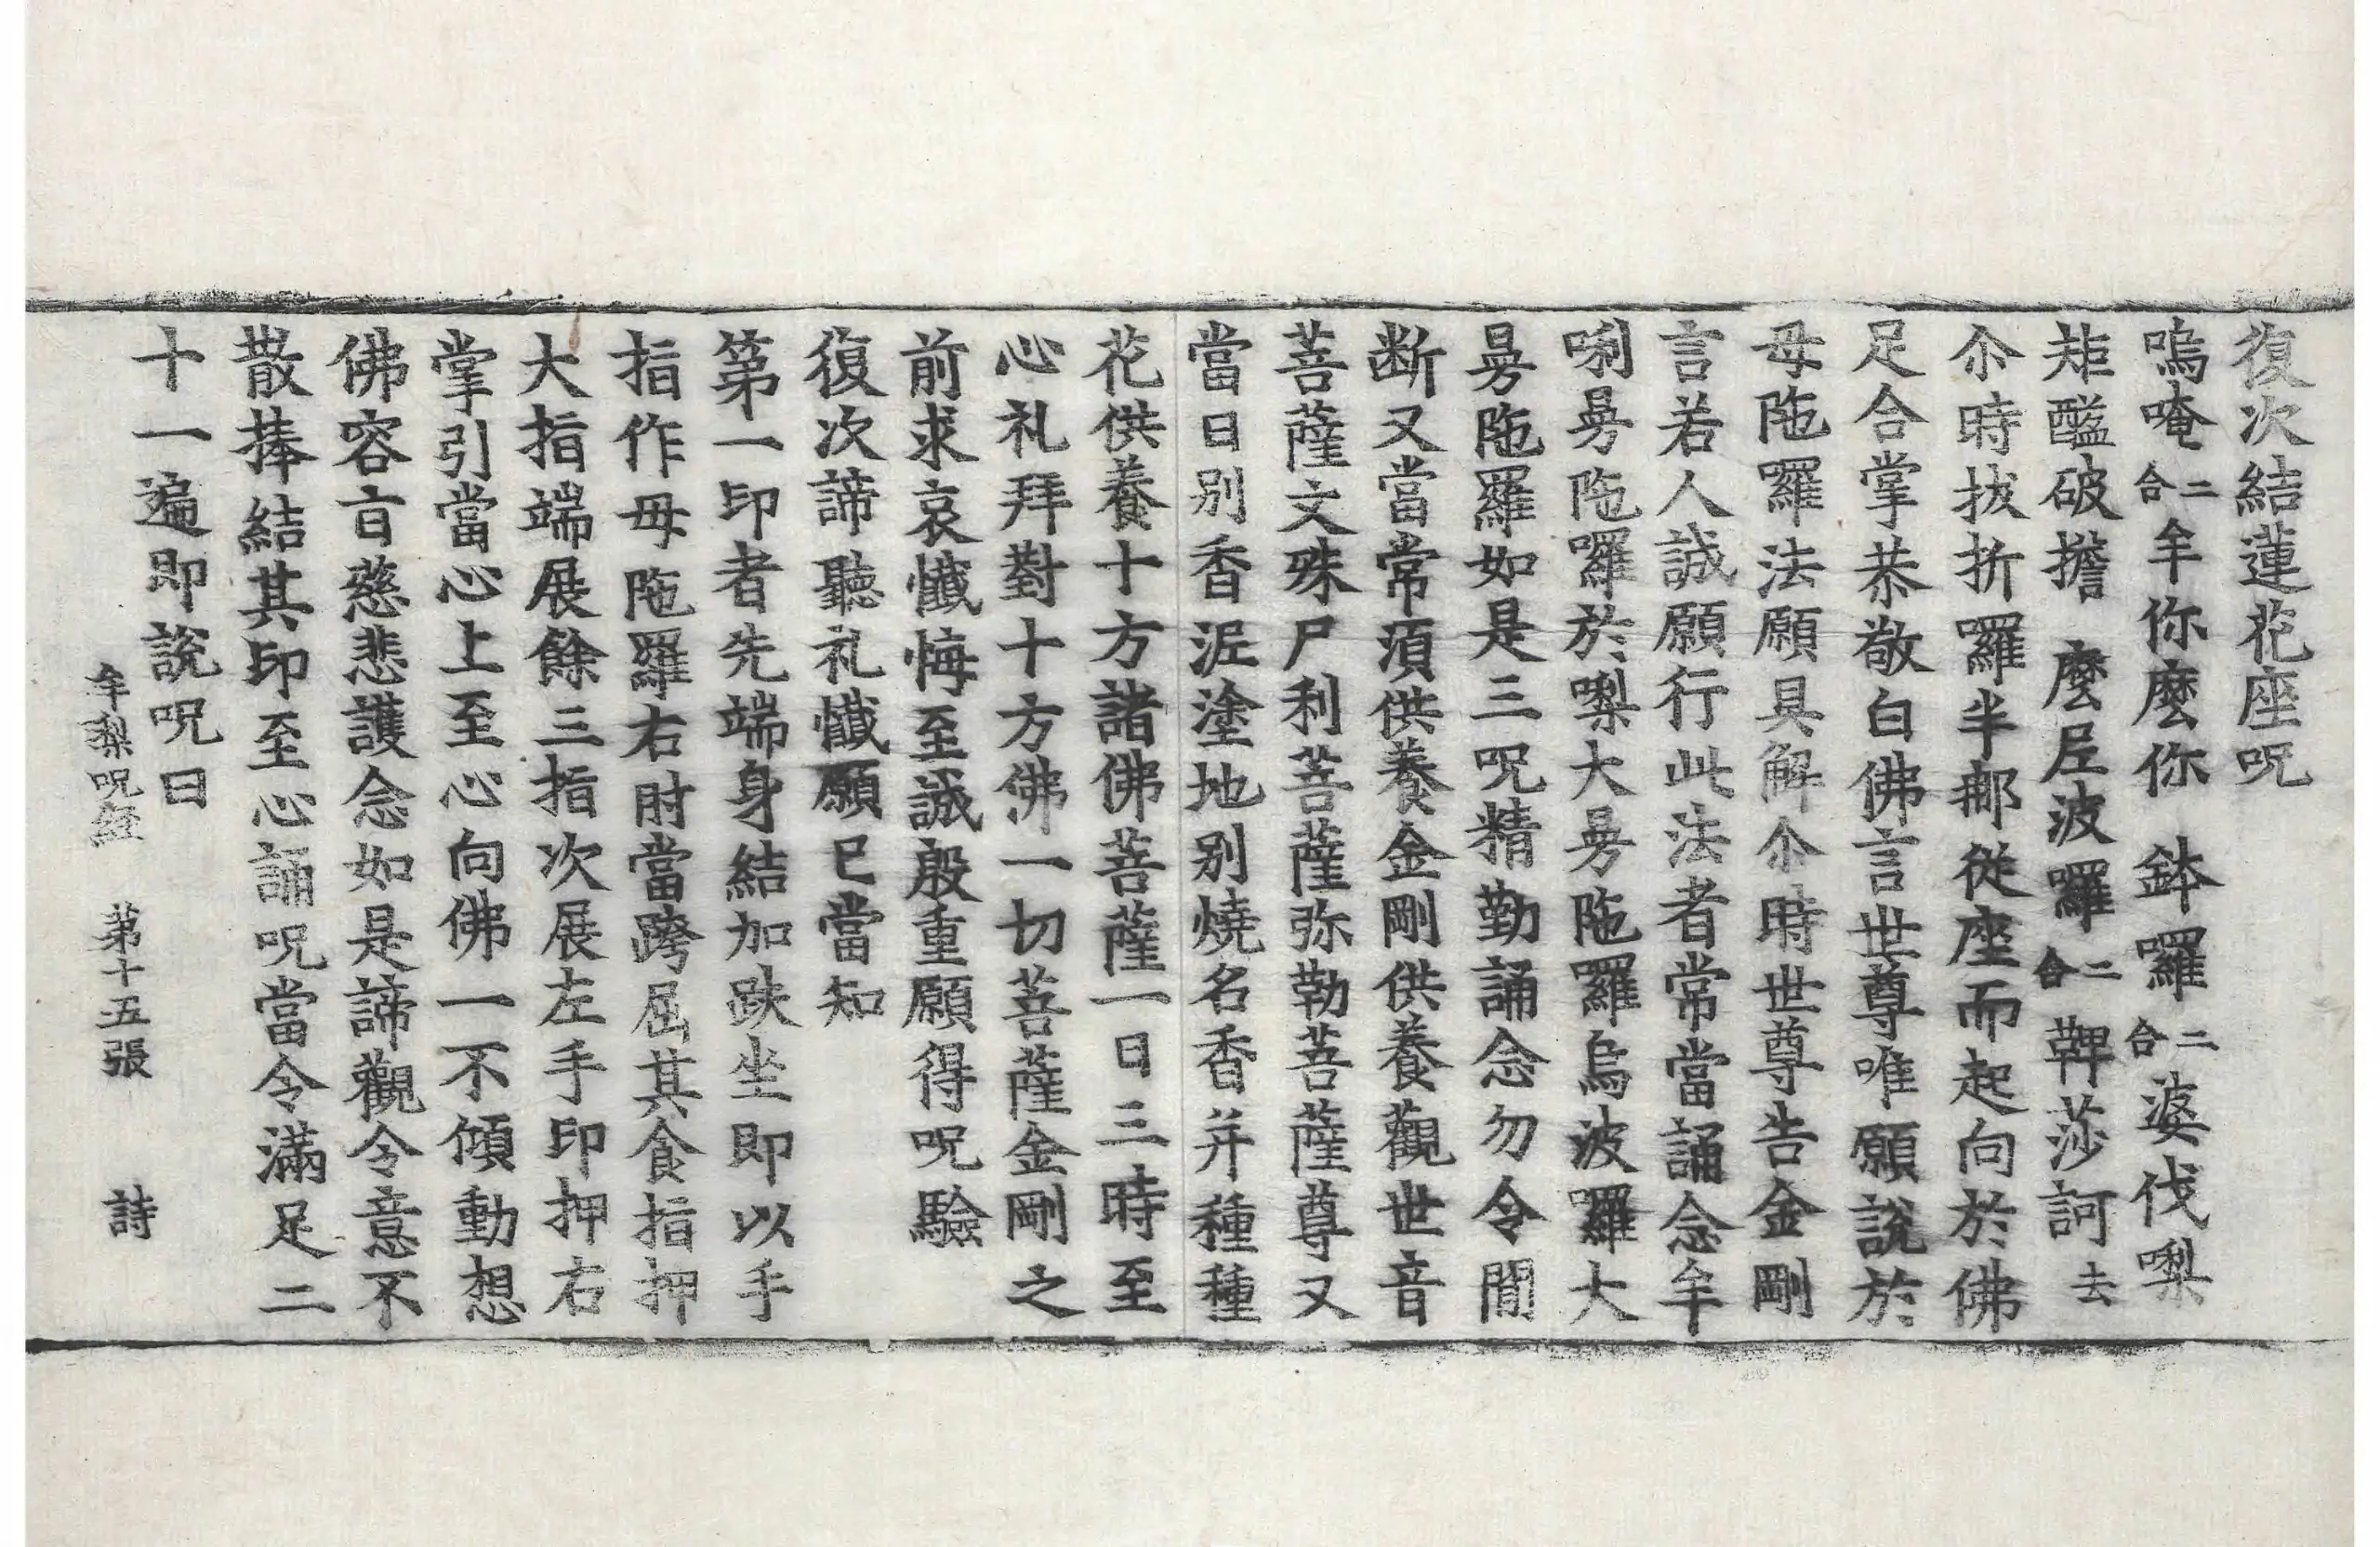 復次結蓮花座呪
嗚唵二合牟你麼你 鉢囉二合婆伐㗚
矩醯破擔 麼𡰱波囉二合鞞莎訶去
尒時拔折囉半那從座而起向於佛
足合掌恭敬白佛言世尊唯願說於
母陁囉法願具解尒時世尊告金剛
言若人誠願行此法者常當誦念牟
唎曼陁囉於㗚大曼陁羅烏波囉大
曼陁羅如是三呪精勤誦念勿令閒
断又當常須供養金剛供養觀世音
菩薩文殊尸利菩薩弥勒菩薩尊又
當日別香泥塗地別燒名香并種種
花供養十方諸佛菩薩一日三時至
心礼拜對十方佛一切菩薩金剛之
前求哀懺悔至誠殷重願得呪驗
復次諦聽礼懺願已當知
第一印者先端身結加趺坐即以手
指作母陁羅右肘當跨屈其食指押
大指端展餘三指次展左手印押右
掌引當心上至心向佛一不傾動想
佛容旨慈悲護念如是諦觀令意不
散捧結其印至心誦呪當令滿足二
十一遍即說呪曰
牟梨呪經 第十五張 詩